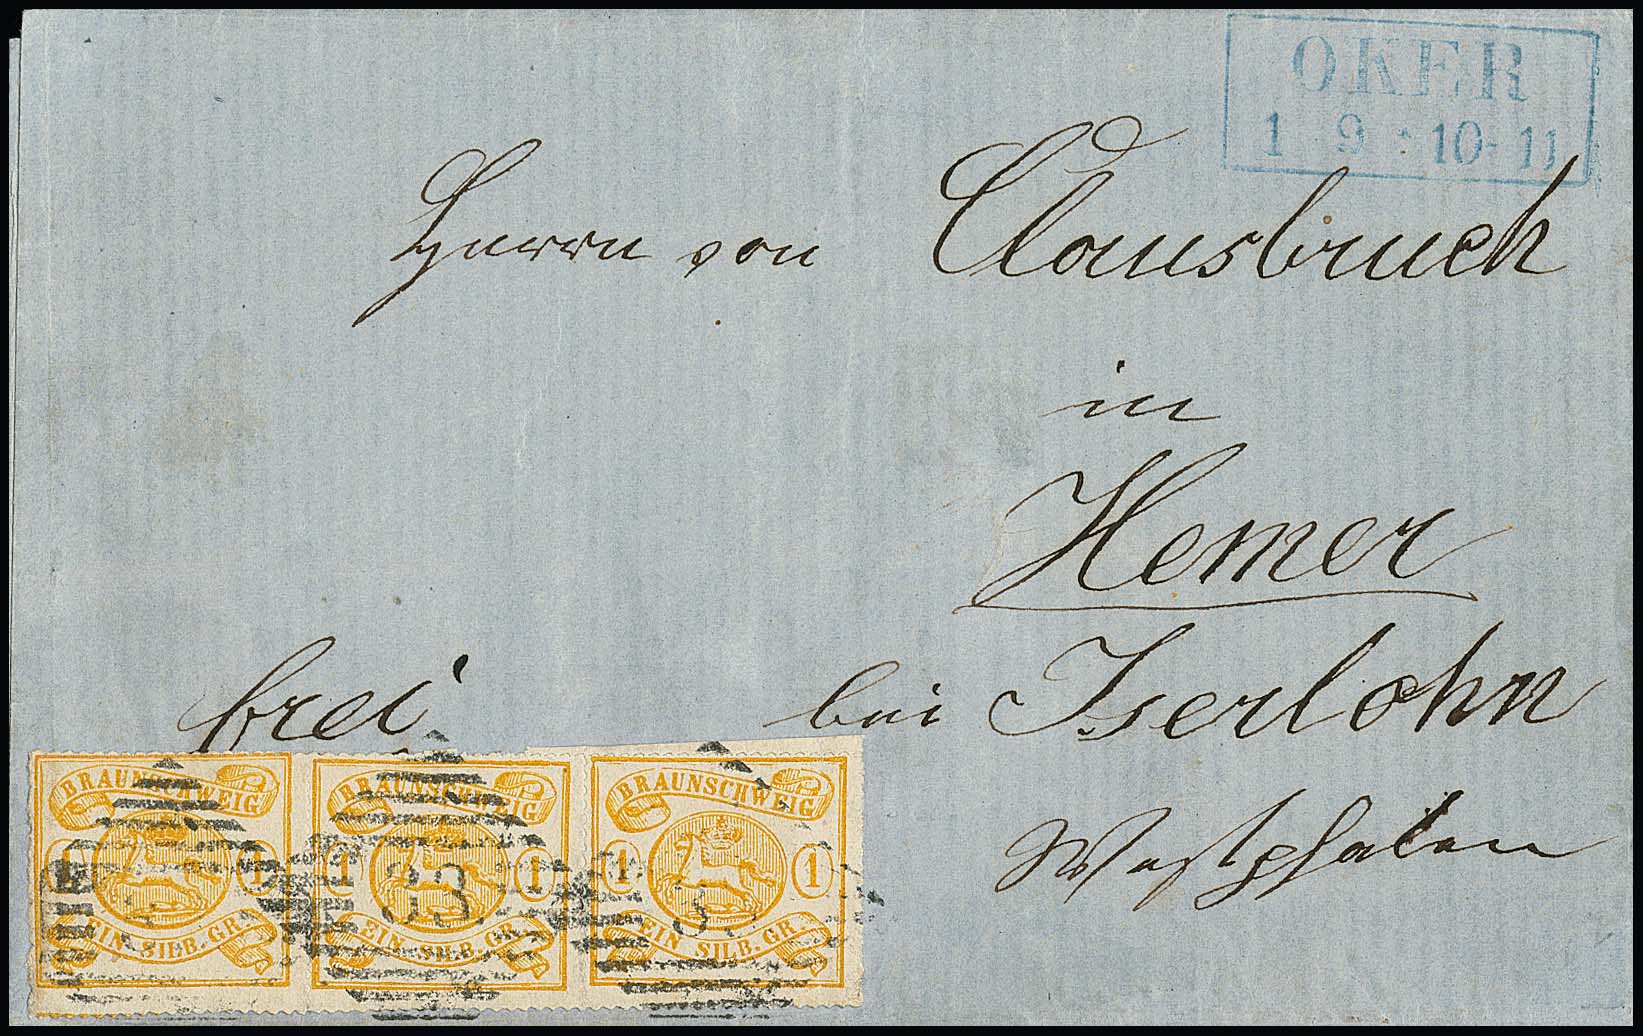 OKER
1 9 * 10-11
Herrn von Clausbruch
in
Hemer
frei
bei Iserlohn
Westphalen
BRAUNSCHWEIG BRAUNSCHWEIG BRAUNSCHWEIG
1 1 1 1 1 1
33 3
EIN SILB. GR. EIN SILB. GR. EIN SILB. GR.